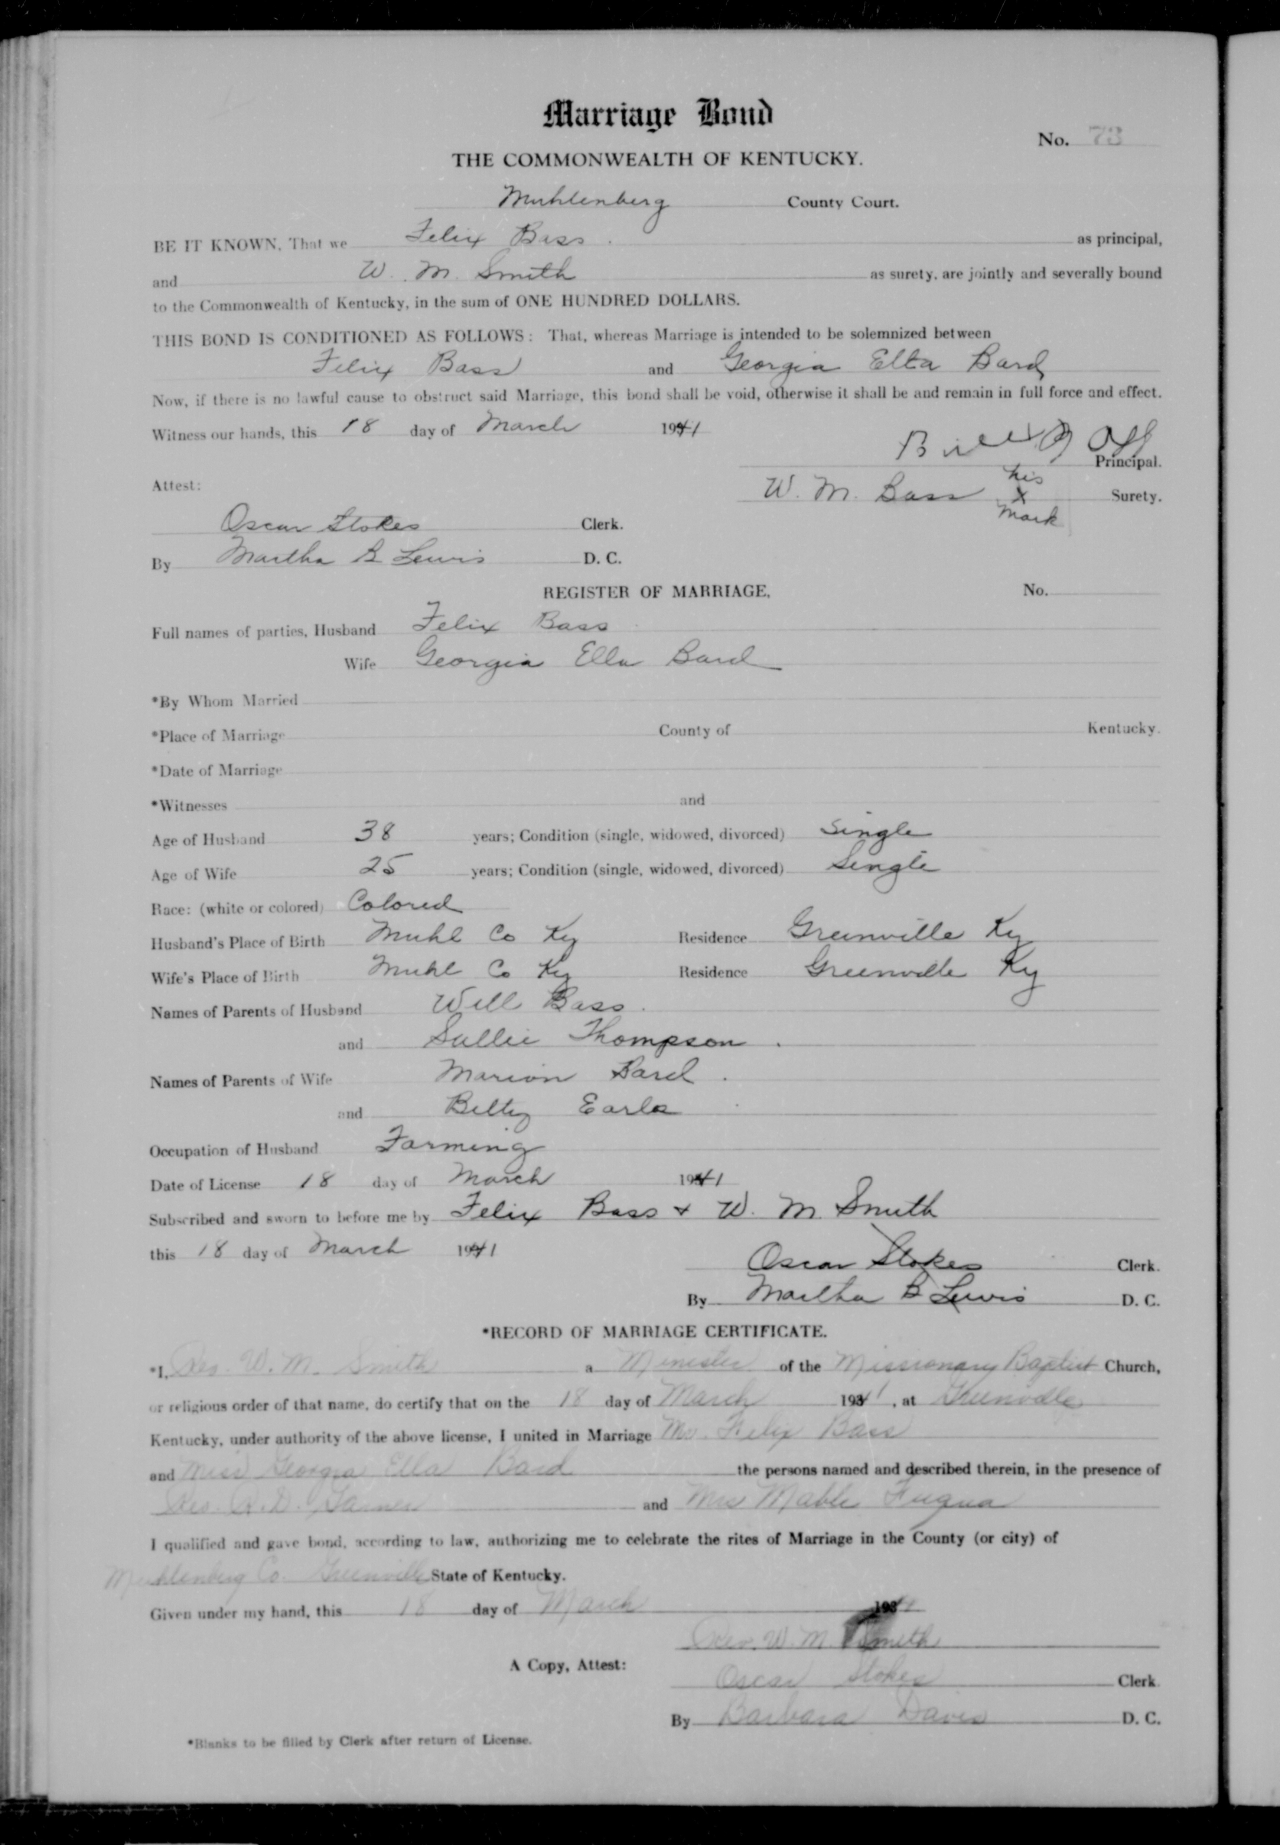 Marriage Bond
No. 73
THE COMMONWEALTH OF KENTUCKY.
Muhlenberg County Court.
BE IT KNOWN, That we Felix Bass. as principal,
and W. M. Smith as surety, are jointly and severally bound
to the Commonwealth of Kentucky, in the sum of ONE HUNDRED DOLLARS.
THIS BOND IS CONDITIONED AS FOLLOWS: That, whereas Marriage is intended to be solemnized between
Felix Bass and Georgia Ella Bard
Now, if there is no lawful cause to obstruct said Marriage, this bond shall be void, otherwise it shall be and remain in full force and effect.
Witness our hands, this 18 day of March 1941
Principal.
W. M. Bass his X mark Surety.
Attest:
Oscar Stokes Clerk.
By Martha B Lewis D. C.
REGISTER OF MARRIAGE, No.
Full names of parties, Husband Felix Bass
Wife Georgia Ella Bard
*By Whom Married
*Place of Marriage County of Kentucky.
*Date of Marriage
*Witnesses and
Age of Husband 38 years; Condition (single, widowed, divorced) Single
Age of Wife 25 years; Condition (single, widowed, divorced) Single
Race: (white or colored) Colored
Husband's Place of Birth Muhl Co Ky Residence Greenville Ky
Wife's Place of Birth Muhl Co Ky Residence Greenville Ky
Names of Parents of Husband Will Bass.
and Sallie Thompson.
Names of Parents of Wife Marion Bard.
and Betty Earle
Occupation of Husband Farming
Date of License 18 day of March 1941
Subscribed and sworn to before me by Felix Bass + W. M. Smith
this 18 day of March 1941
Oscar Stokes Clerk.
By Martha B Lewis D. C.
*RECORD OF MARRIAGE CERTIFICATE.
*I, Rev. W. M. Smith a Minister of the Missionary Baptist Church,
or religious order of that name, do certify that on the 18 day of March 1941, at Greenville
Kentucky, under authority of the above license, I united in Marriage Mr. Felix Bass
and Miss Georgia Ella Bard the persons named and described therein, in the presence of
Rev. R. D. Garner and Mrs Mable Fuqua
I qualified and gave bond, according to law, authorizing me to celebrate the rites of Marriage in the County (or city) of
Muhlenberg Co. Greenville State of Kentucky.
Given under my hand, this 18 day of March 1941
Rev. W. M. Smith
A Copy, Attest:
Oscar Stokes Clerk
By Barbara Davis D. C.
*Blanks to be filled by Clerk after return of License.